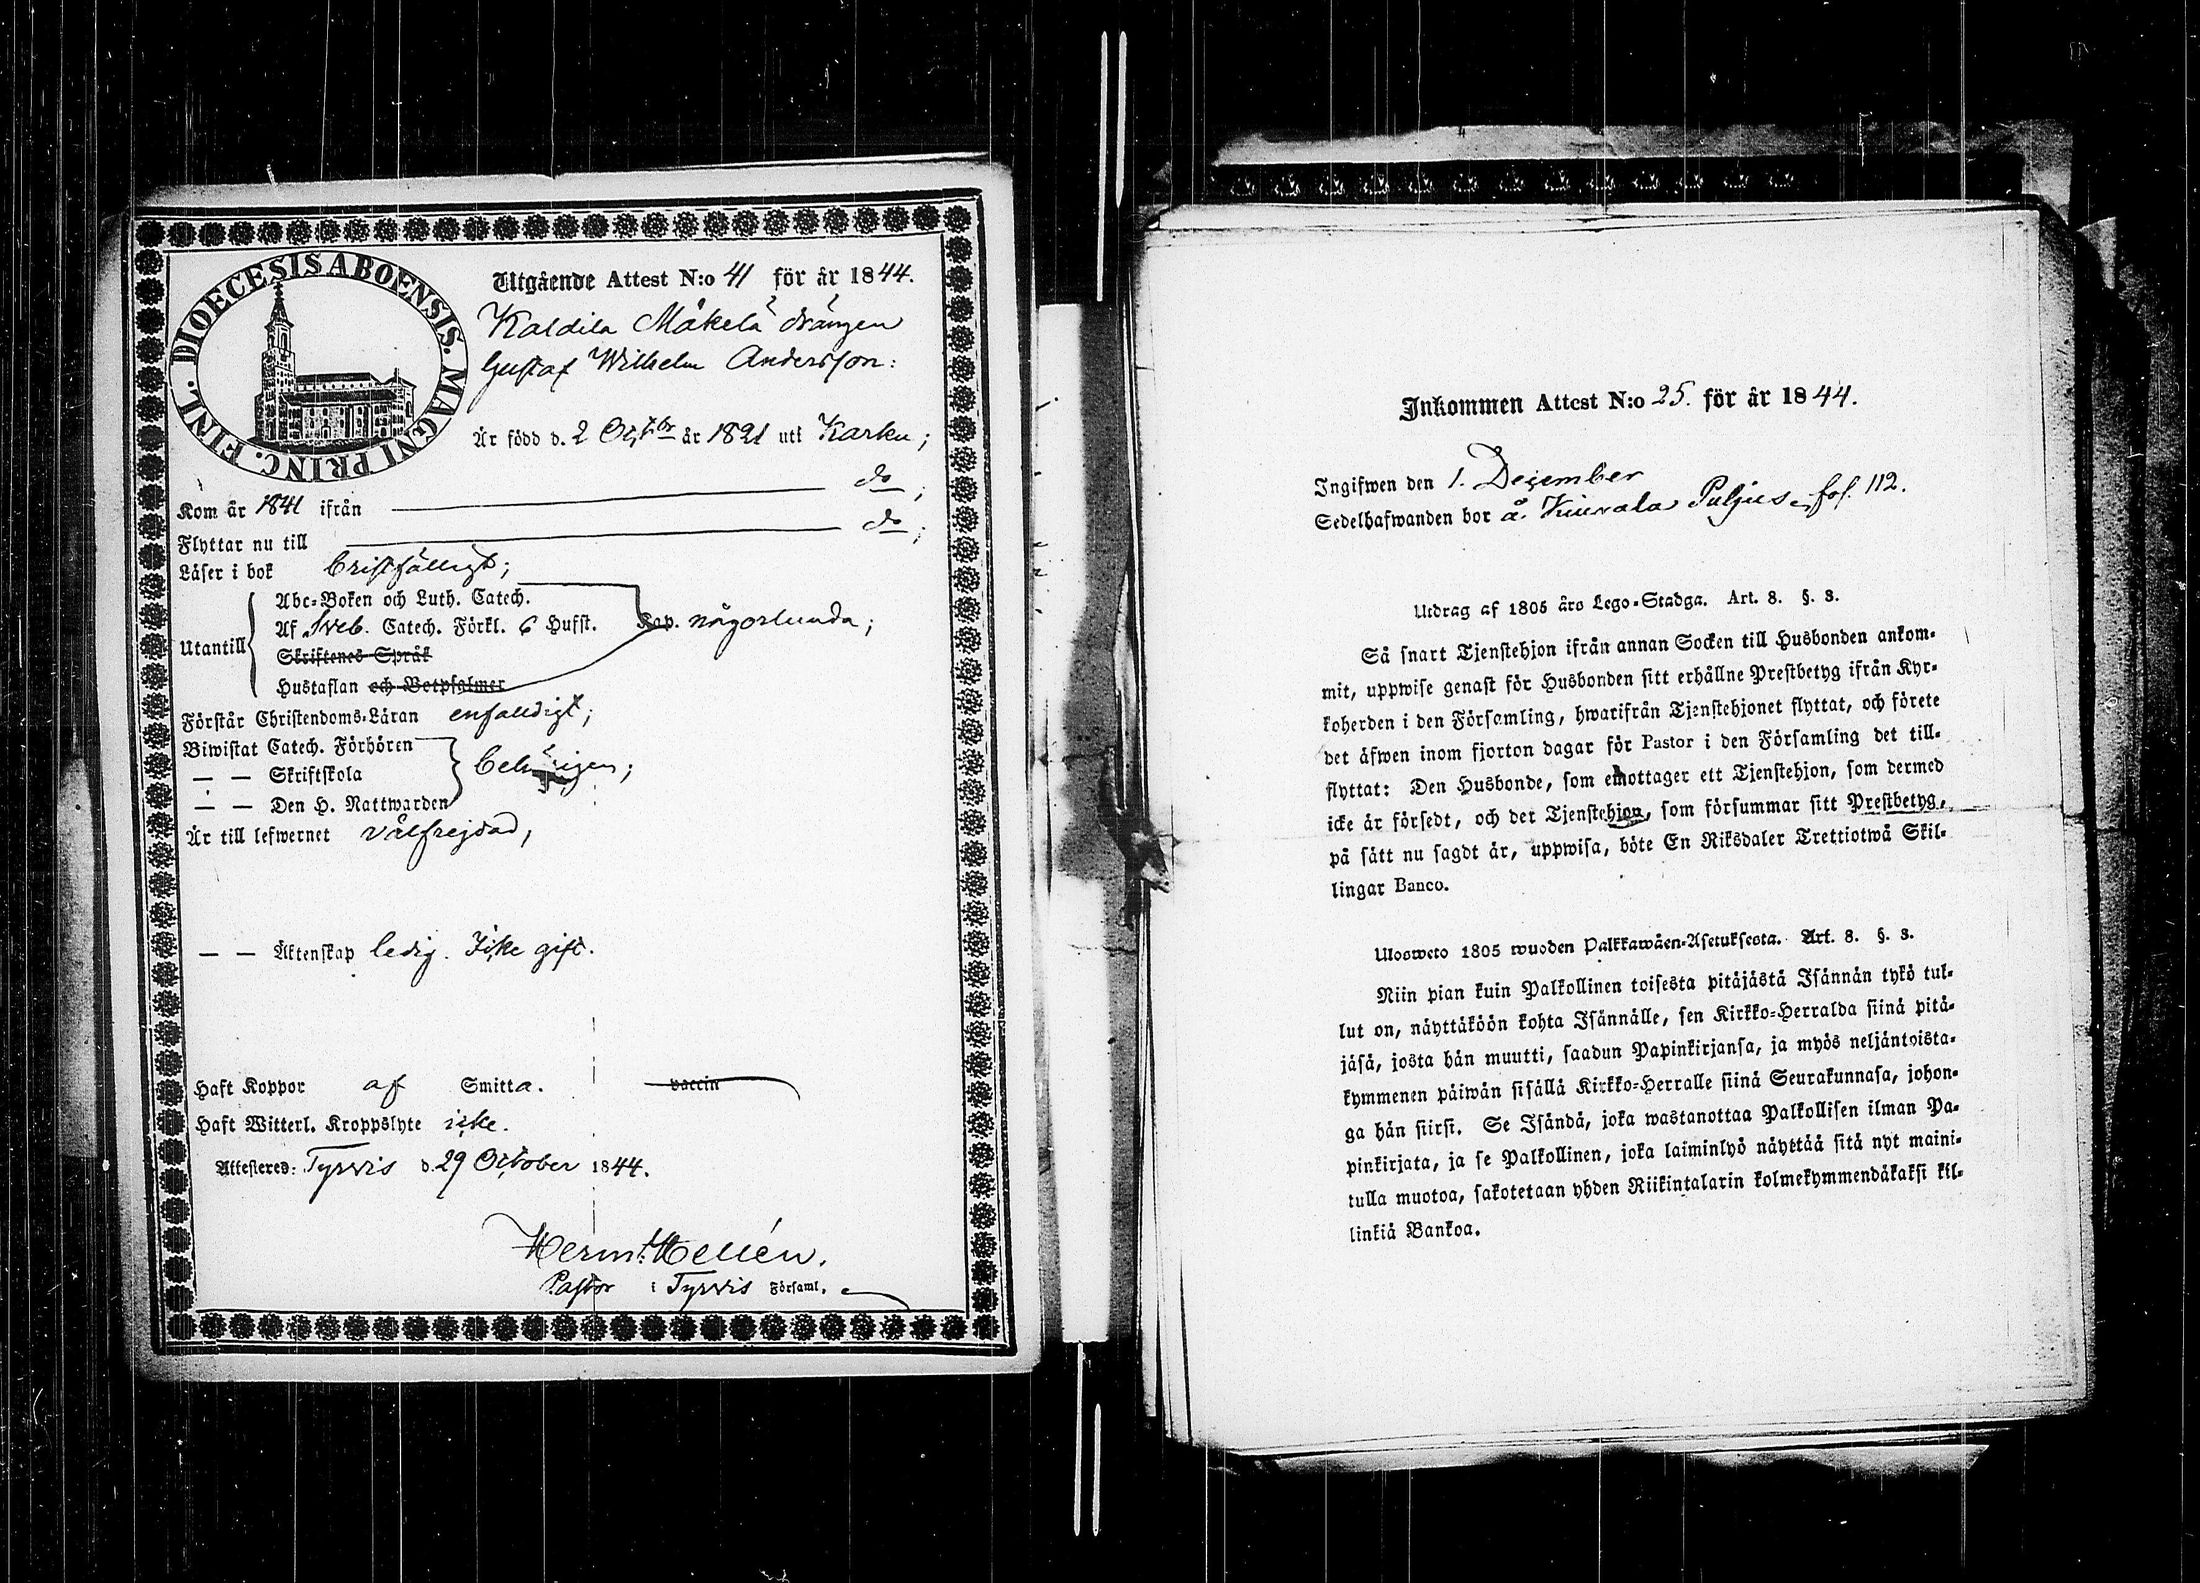 DIOECESIS ABOENSIS. MAGNI PRINC. FINL.
Utgående Attest N:o 41 för år 1844.
Kaldila Mäkelä drängen
Gustaf Wilhelm Andersson:
Är född d. 2 Oct:br år 1821 uti Karku;
Kom år 1841 ifrån do;
Flyttar nu till do;
Läser i bok bristfälligt;
Abc-Boken och Luth. Catech.
Af Sveb. Catech. Förkl. 6 Hufst. Kap. någorlunda;
Utantill
Skriftenes Språk
Hustaflan och Botpsalmer
Förstår Christendoms-Läran enfaldigt;
Biwistat Catech. Förhören
— — Skriftskola behörigen;
— — Den H. Nattwarden
Är till lefwernet välfrejdad,
— — Äktenskap ledig. Icke gift.
Haft Koppor af Smitta. vaccin
Haft Witterl. Kroppslyte icke.
Attestered: Tyrvis d. 29 October 1844.
Herm: Hellén.
Pastor i Tyrvis Församl.
Inkommen Attest N:o 25. för år 1844.
Ingifwen den 1. December
Sedelhafwanden bor å Kiurala Puljus fol. 112.
Utdrag af 1805 års Lego-Stadga. Art. 8. §. 3.
Så snart Tjenstehjon ifrån annan Socken till Husbonden ankom-
mit, uppwise genast för Husbonden sitt erhållne Prestbetyg ifrån Kyr-
koherden i den Församling, hwarifrån Tjenstehjonet flyttat, och förete
det äfwen inom fjorton dagar för Pastor i den Församling det till-
flyttat: Den Husbonde, som emottager ett Tjenstehjon, som dermed
icke är försedt, och det Tjenstehjon, som försummar sitt Prestbetyg,
på sätt nu sagdt är, uppwisa, böte En Riksdaler Trettiotwå Skil-
lingar Banco.
Ulosweto 1805 wuoden Palkkawäen-Asetuksesta. Art. 8. §. 3.
Niin pian kuin Palkollinen toisesta pitäjästä Isännän tykö tul-
lut on, näyttäköön kohta Isännälle, sen Kirkko-Herralda siinä pitä-
jäsä, josta hän muutti, saadun Papinkirjansa, ja myös neljäntoista-
kymmenen päiwän sisällä Kirkko-Herralle siinä Seurakunnasa, johon-
ga hän siirsi. Se Isändä, joka wastanottaa Palkollisen ilman Pa-
pinkirjata, ja se Palkollinen, joka laiminlyö näyttää sitä nyt maini-
tulla muotoa, sakotetaan yhden Riikintalarin kolmekymmendäkaksi kil-
linkiä Bankoa.